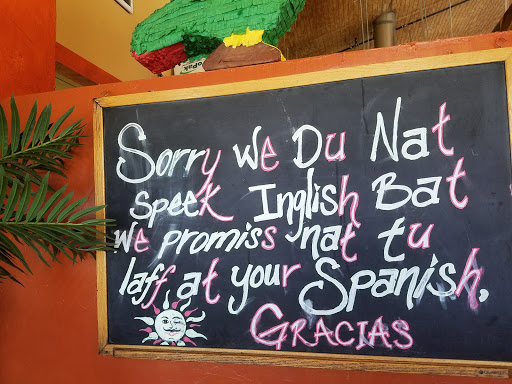 Sorry We Du Nat
speek Inglish Bat
We promiss nat tu
laff at your Spanish,
GRACIAS